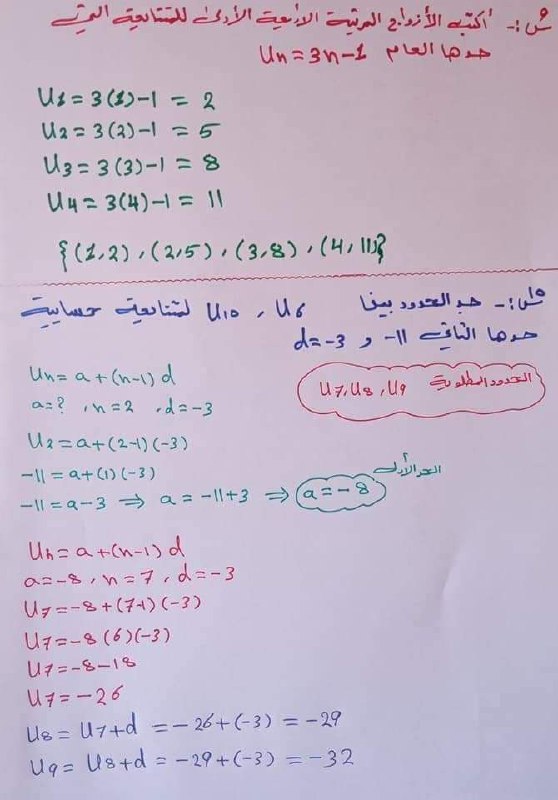 س:- أكتب الأزواج المرتبة الأربعة الأولى للمتتابعة التي
حدها العام Un = 3n-1
U1 = 3(1)-1 = 2
U2 = 3(2)-1 = 5
U3 = 3(3)-1 = 8
U4 = 3(4)-1 = 11
{(1,2), (2,5), (3,8), (4,11)}
س:- جد الحدود بين U10, U6 لمتتابعة حسابية
حدها الثاني -11 و d=-3
الحدود المطلوبة U7, U8, U9
Un = a+(n-1)d
a=? , n=2 , d=-3
U2 = a+(2-1)(-3)
-11 = a+(1)(-3)
-11 = a-3 ⇒ a = -11+3 ⇒ a=-8 الحد الأول
Un = a+(n-1)d
a=-8 , n=7 , d=-3
U7=-8+(7-1)(-3)
U7=-8(6)(-3)
U7=-8-18
U7=-26
U8 = U7+d = -26+(-3) = -29
U9 = U8+d = -29+(-3) = -32